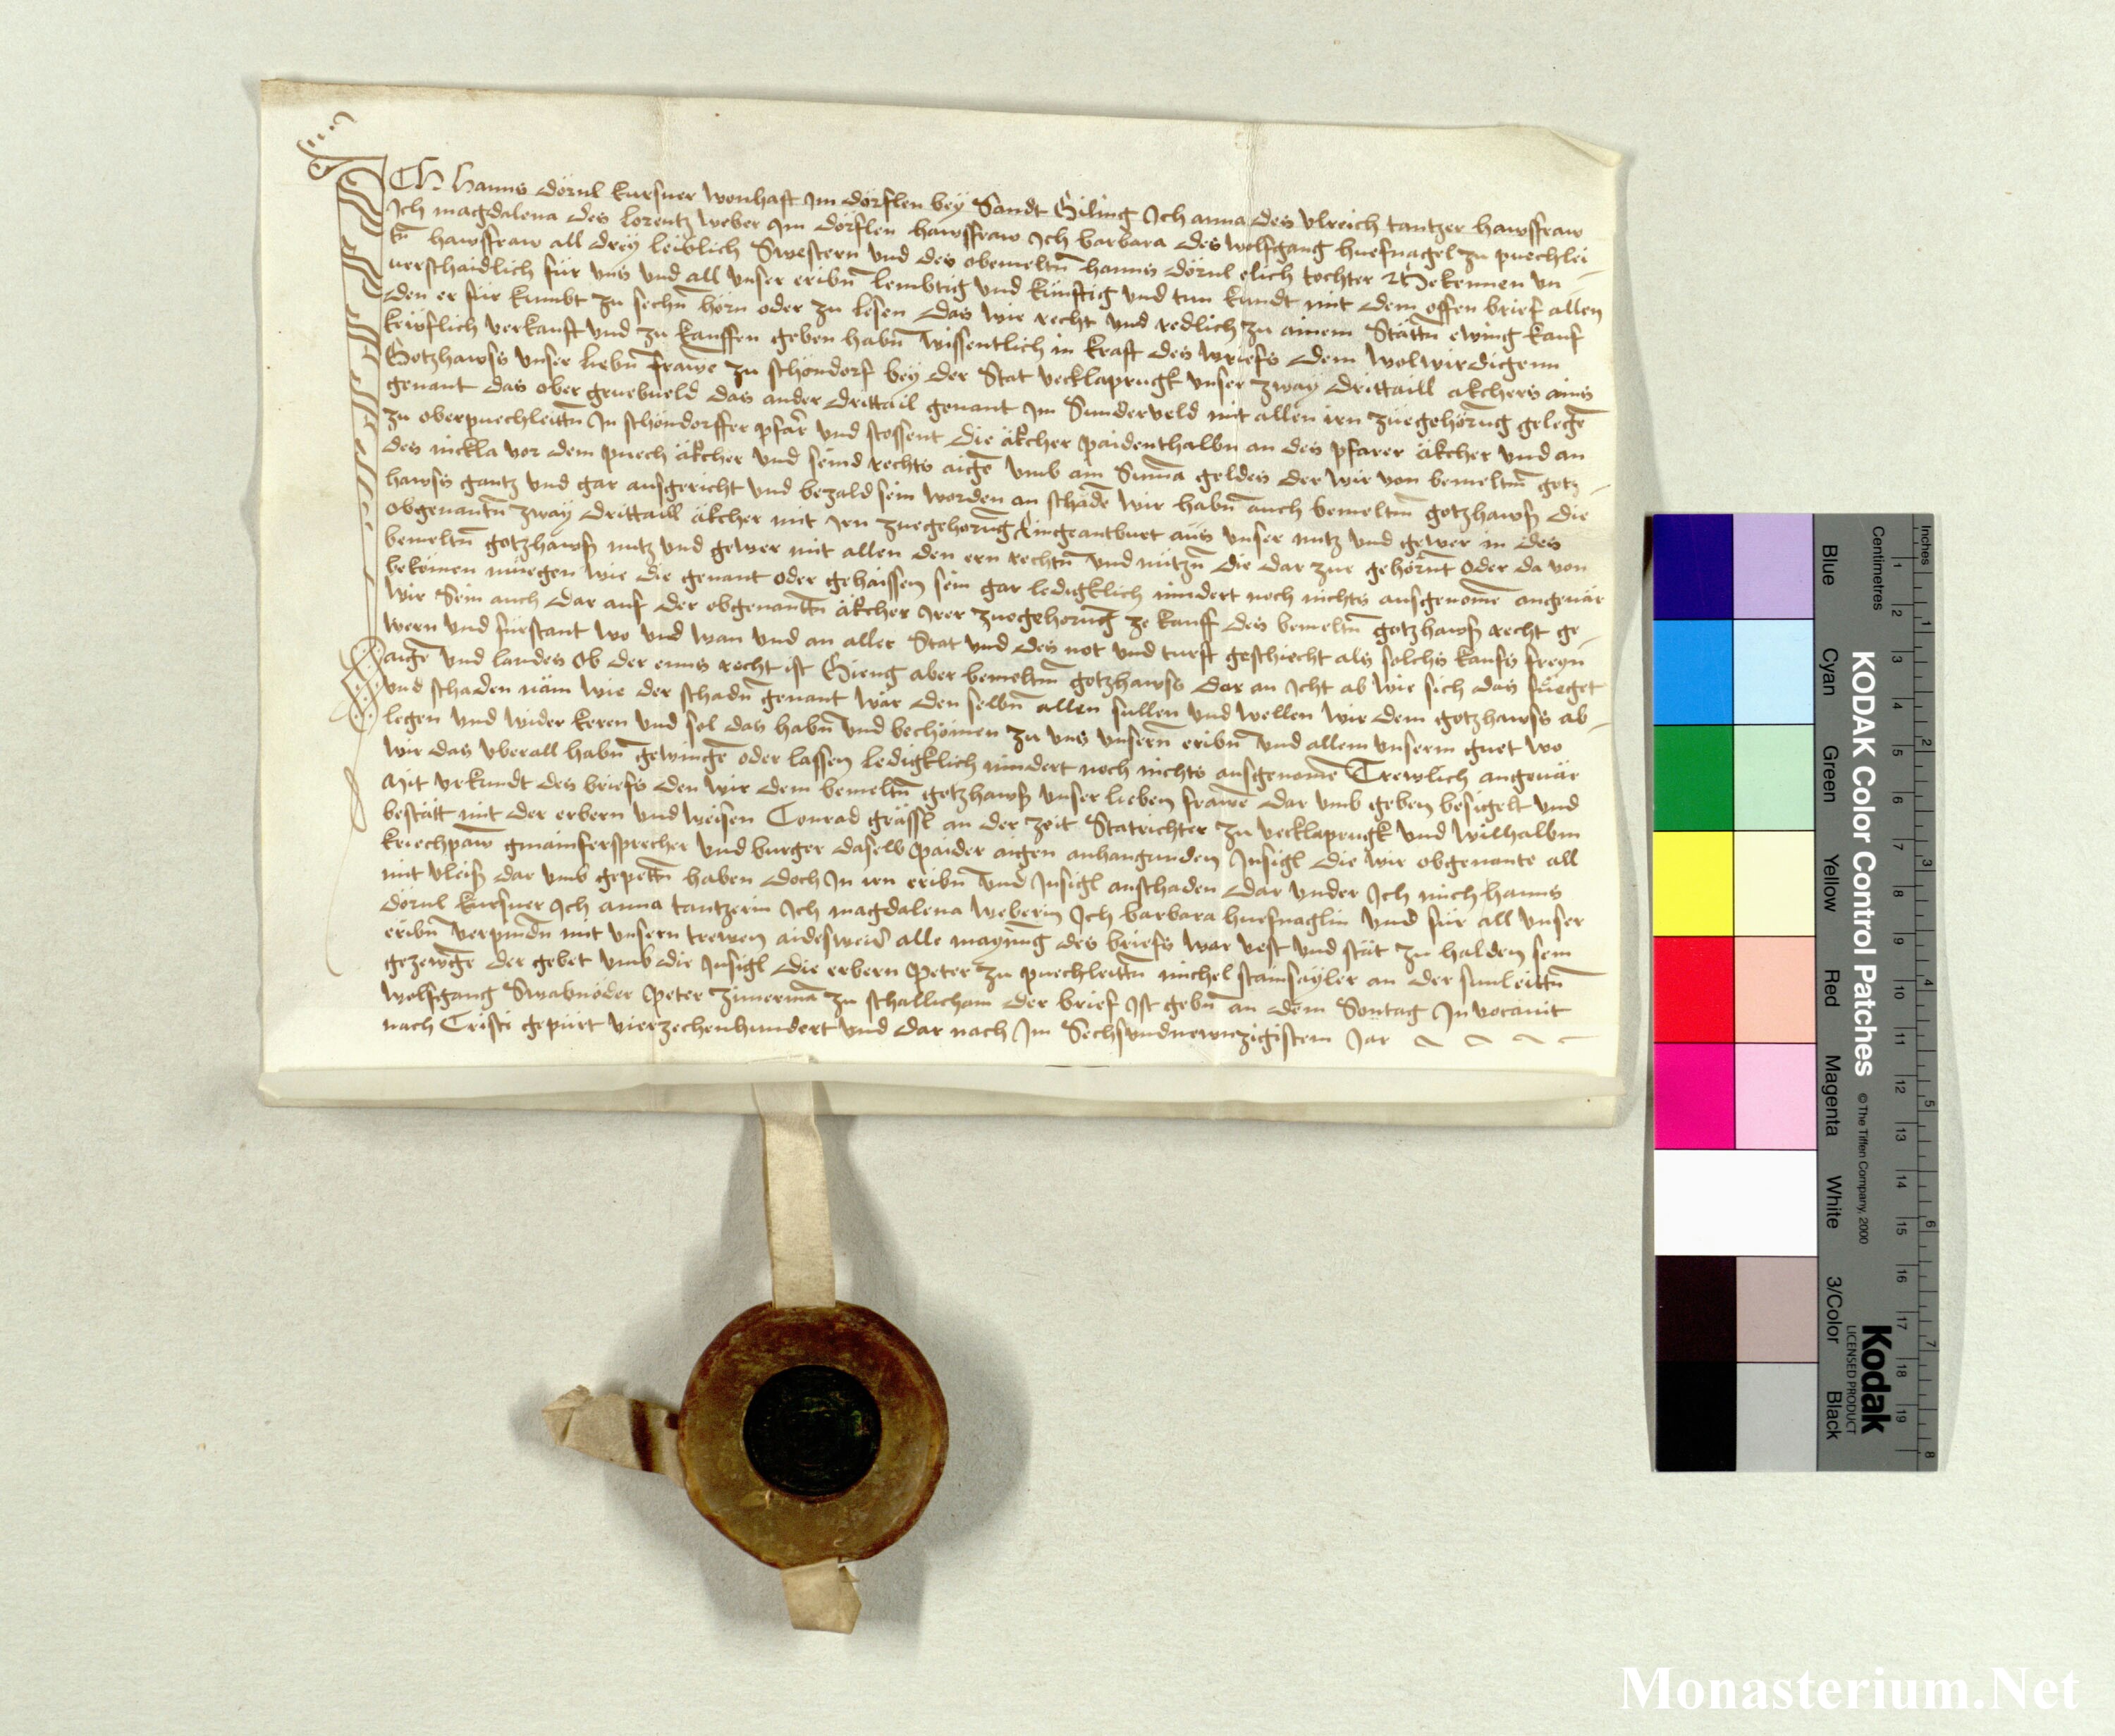 ICh Hanns dörnl kursner wonhaft Im dörflen bey Sandt Giling Ich anna des vlreich tantzer hawsfraw
Ich magdalena des lorentz weber Im dörflen hawsfraw Ich barbara des wolfgang huefnagel zu puechlei
tn̄ hawsfraw all drey leiblich Swestern vnd des obemeltn̄ hanns dörnl elich tochter Bekennen vn-
uerschaidlich für vns vnd all vnser eribn̄ lembtig vnd künftig vnd tun kundt mit dem offen brief allen
den er für kumbt zu sechn̄ hörn oder zu lesen das wir recht vnd redlich zu ainem Stättn̄ ewing kauf
keiflich verkauft vnd zu kauffen geben habn̄ wissentlich in kraft des briefs dem wolwirdigenn
Gotzhawss vnser liebn̄ frawe zu schöndorf bey der Stat vecklaprugk vnser zway drittaill akchers ains
genant das ober gruebueld das ander drittail genant Im Sunderveld mit allen irn zuegehörūg gelegē
zu oberpuechleittn̄ In schöndorffer pfarr vnd stossent die äkcher paidenthalbn an des pfarer äkcher vnd an
des nickla vor dem puech äkcher vnd seind rechts aigē vmb ain Sum̄a geldes der wir von bemeltm̄ gotz-
hawss gantz vnd gar ausgericht vnd bezald sein worden an schadē wir habn̄ auch bemeltm̄ gotzhawss die
obgenantn̄ zway drittaill äkcher mit iren zuegehorūg Eingeantburt aus vnser nutz vnd gewer in des
bemeltn̄ gotzhawss nutz vnd gewer mit allen den ern rechtn̄ vnd nützn̄ die dar zue gehörnt oder da von
bekömen müegen wie die genant oder gehaissen sein gar ledigklich nindert noch nichts ausgenomē angeuär
wir Sein auch dar auf der obgenanttn̄ äkcher Irer zuegehorūg ze kauff des bemeltn̄ gotzhawss recht ge-
wern vnd fürstant wo vnd wan vnd an aller Stat vnd des not vnd turft geschiecht als solchs kaufs freyn
aigē vnd landes ob der enns recht ist Gieng aber bemeltm̄ gotzhawss dar an Icht ab wie sich das fueget
vnd schaden näm wie der schadn̄ genant wär den selbn̄ allen sullen vnd wellen wir dem gotzhawss ab-
legen vnd wider keren vnd sol das habn̄ vnd bechömen zu vns vnsern̄ eribn̄ vnd allem vnserm guet wo
wir das vberall habn̄ gewingē oder lassen ledigklich nindert noch nichts ausgenomē Trewlich angeuär
Mit vrkundt des briefs den wir dem bemeltn̄ gotzhawss vnser lieben frawē dar vmb geben besigelt vnd
bestätt mit der erbern vnd weisen Conrad grässl an der zeit Statrichter zu vecklaprugk vnd wilhalbm
kriechpawm gmainfersprecher vnd burger daselb paider aigen anhangunden Insigl die wir obgenante all
mit vleis dar vmb gepettn̄ haben doch In irn eribn̄ vnd Insigl anschaden dar vnder Ich mich hanns
dörnl kursner Ich anna tantzerin Ich magdalena weberin Ich barbara huefnaglin vnd für all vnser
eribn̄ verpindn̄ mit vnsern trewen aidesweis alle maynūg des briefs war vest vnd stät zu halden sein
gezewgē der gebet vmb die Insigl die erbern Peter zu puechleittn̄ michel stainsayler an der sunleittn̄
wolfgang Swabnöder Peter zimermā zu schallicham der brief Ist gebn̄ an dem Sontag In vocauit
nach Cristi gepürt vierzechenhundert vnd dar nach Im Sechsvndnewnzigistem Jar
Inches
Centimetres
1 2 3 4 5 6 7 8 9 10 11 12 13 14 15 16 17 18 19
1 2 3 4 5 6 7 8
KODAK Color Control Patches
© The Tiffen Company, 2000
Kodak
LICENSED PRODUCT
Blue
Cyan
Green
Yellow
Red
Magenta
White
3/Color
Black
Monasterium.Net